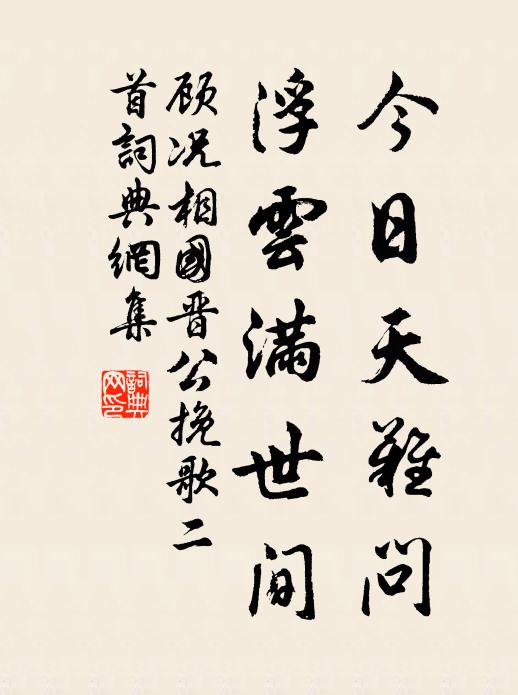 今日天難問
浮雲滿世间
顾况相國晋公挽歌二
首詞典網集
詞典
网印